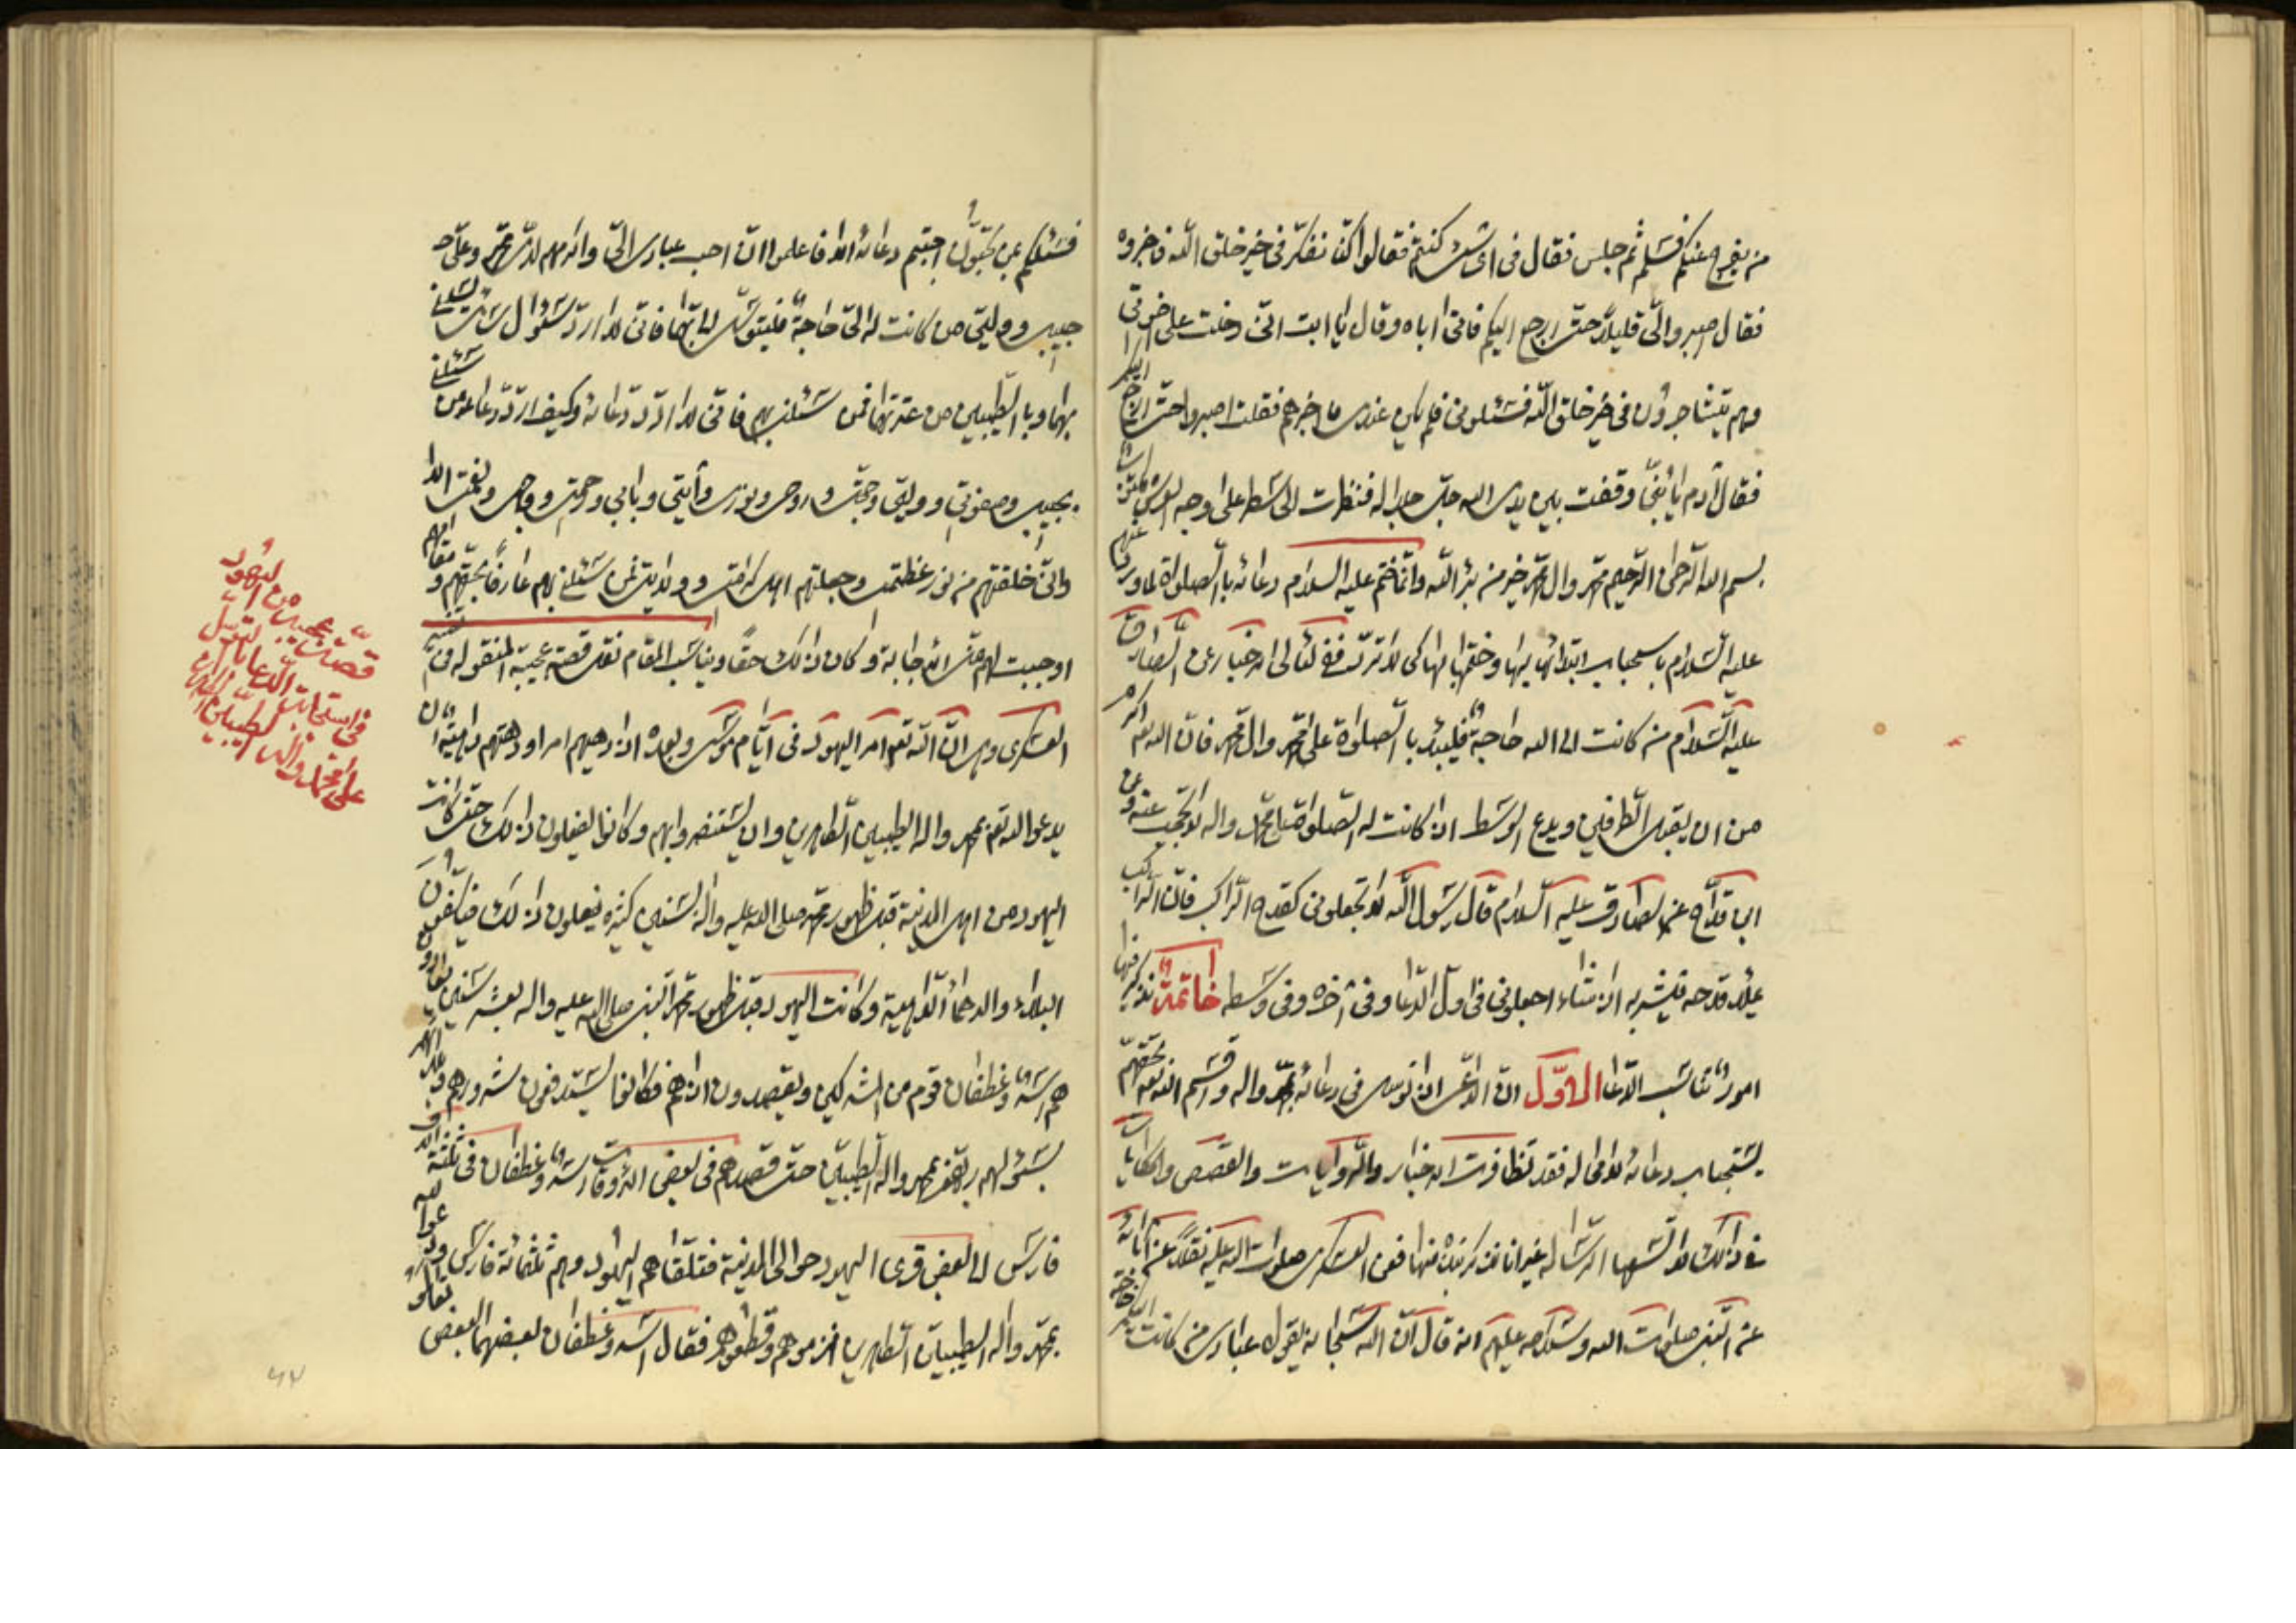 من يفرج عنكم فسلم ثم جلس فقال فى اى شئ كنتم فقالوا كنا نفكر فى خير خلق الله فاخبروه
فقال اصبروا الىّ قليلاً حتى ارجع اليكم فاتى اباه وقال يا ابت انى دخلت على اخوتى
وهم يتشاجرون فى خير خلق الله فسئلونى فلم يكن عندى ما اخبرهم فقلت اصبروا حتى ارجع اليكم
فقال آدم يا بنىّ وقفت بين يدى الله جل جلاله فنظرت الى سطر على وجه العرش مكتوب
بسم الله الرحمن الرحيم محمد وآل محمد خير من برأ الله وانما ختم عليه السلام دعائه بالصلوة لما ورد عنهم
عليه السلام باستحباب ابتدائه بها وختمها بها كى لا ترد ففى الاخبار عن الصادق
عليه السلام من كانت له الى الله حاجة فليبدء بالصلوة على محمد وال محمد فان الله تعالى اكرم
من ان يقبل الطرفين ويدع الوسط اذا كانت له الصلوة على محمد واله لا تحجب عنه وعن
ابن قداح عن الصادق عليه السلام قال رسول الله لا تجعلونى كقدح الراكب فان الراكب
يملأ قدحه فيشربه اذا شاء اجعلونى فى اول الدعا وفى آخره وفى وسطه خاتمة نذكر فيها
امور تناسب الدعا الاول ان الداعى اذا توسل فى دعائه بمحمد واله واقسم الله تعالى بحقهم
يستجاب دعائه لا محاله فقد تظافرت الاخبار والروايات والقصص والحكايات
فى ذلك لا تسعها الرسالة غير انا نذكر نبذة منها فعن العسكرى صلوات الله عليه نقلاً عن آبائه
عن النبى صلوات الله وسلامه عليهم انه قال ان الله سبحانه يقول عبادى من كانت له اليكم حاجة
فسئلكم بمن تحبون اجبتم دعائه الا فاعلموا ان احب عبادى الىّ واكرمهم لدىّ محمد وعلى
حبيبى ووليى فمن كانت له الىّ حاجة فليتوسل الىّ بهما فانى لا ارد سؤال سائل يسئلنى
بهما وبالطيبين من عترتهما فمن سئلنى بهم فانى لا ارد دعائه وكيف ارد دعاء من سئلنى
بحبيبى وصفوتى ووليى وحجتى وروحى ونورى وآيتى وبابى ورحمتى ووجهى ونعمتى الا
وانى خلقتهم من نور عظمتى وجعلتهم اهل كرامتى وولايتى فمن سئلنى بهم عارفاً بحقهم ومقامهم
اوجبت لهم منى الاجابة وكان ذلك حقاً ويناسب المقام نقل قصة عجيبة المنقوله فى تفسير
العسكرى وهى انّ الله تعالى امر اليهود فى ايام موسى وبعده اذا دهيهم امر او دهتهم داهية ان
يدعوا الله تعالى بمحمد واله الطيبين الطاهرين وان يستنصروا بهم وكانوا يفعلون ذلك حتى كانت
اليهود من اهل المدينة قبل ظهور محمد صلى الله عليه واله بسنين كثيرة يفعلون ذلك فيكفون
البلاء والدهماء الداهية وكانت اليهود قبل ظهور محمد النبى صلى الله عليه واله بعشر سنين يعادونهم
اسد وغطفان قوم من المشركين ويقصدون اذاهم فكانوا يستدفعون شرورهم وبلائهم
بسؤالهم ربهم بمحمد واله الطيبين حتى قصدهم فى بعض الاوقات اسد وغطفان فى ثلثة الاف
فارس الى بعض قرى اليهود حوالى المدينة فتلقاهم اليهود وهم ثلثمائة فارس ودعوا الله
بمحمد واله الطيبين الطاهرين فهزموهم وقطعوهم فقال اسد وغطفان بعضهما لبعض تعالوا
قصة عجيبة من اليهود
فى استجابة الدعا بالتوسل
على محمد واله الطيبين